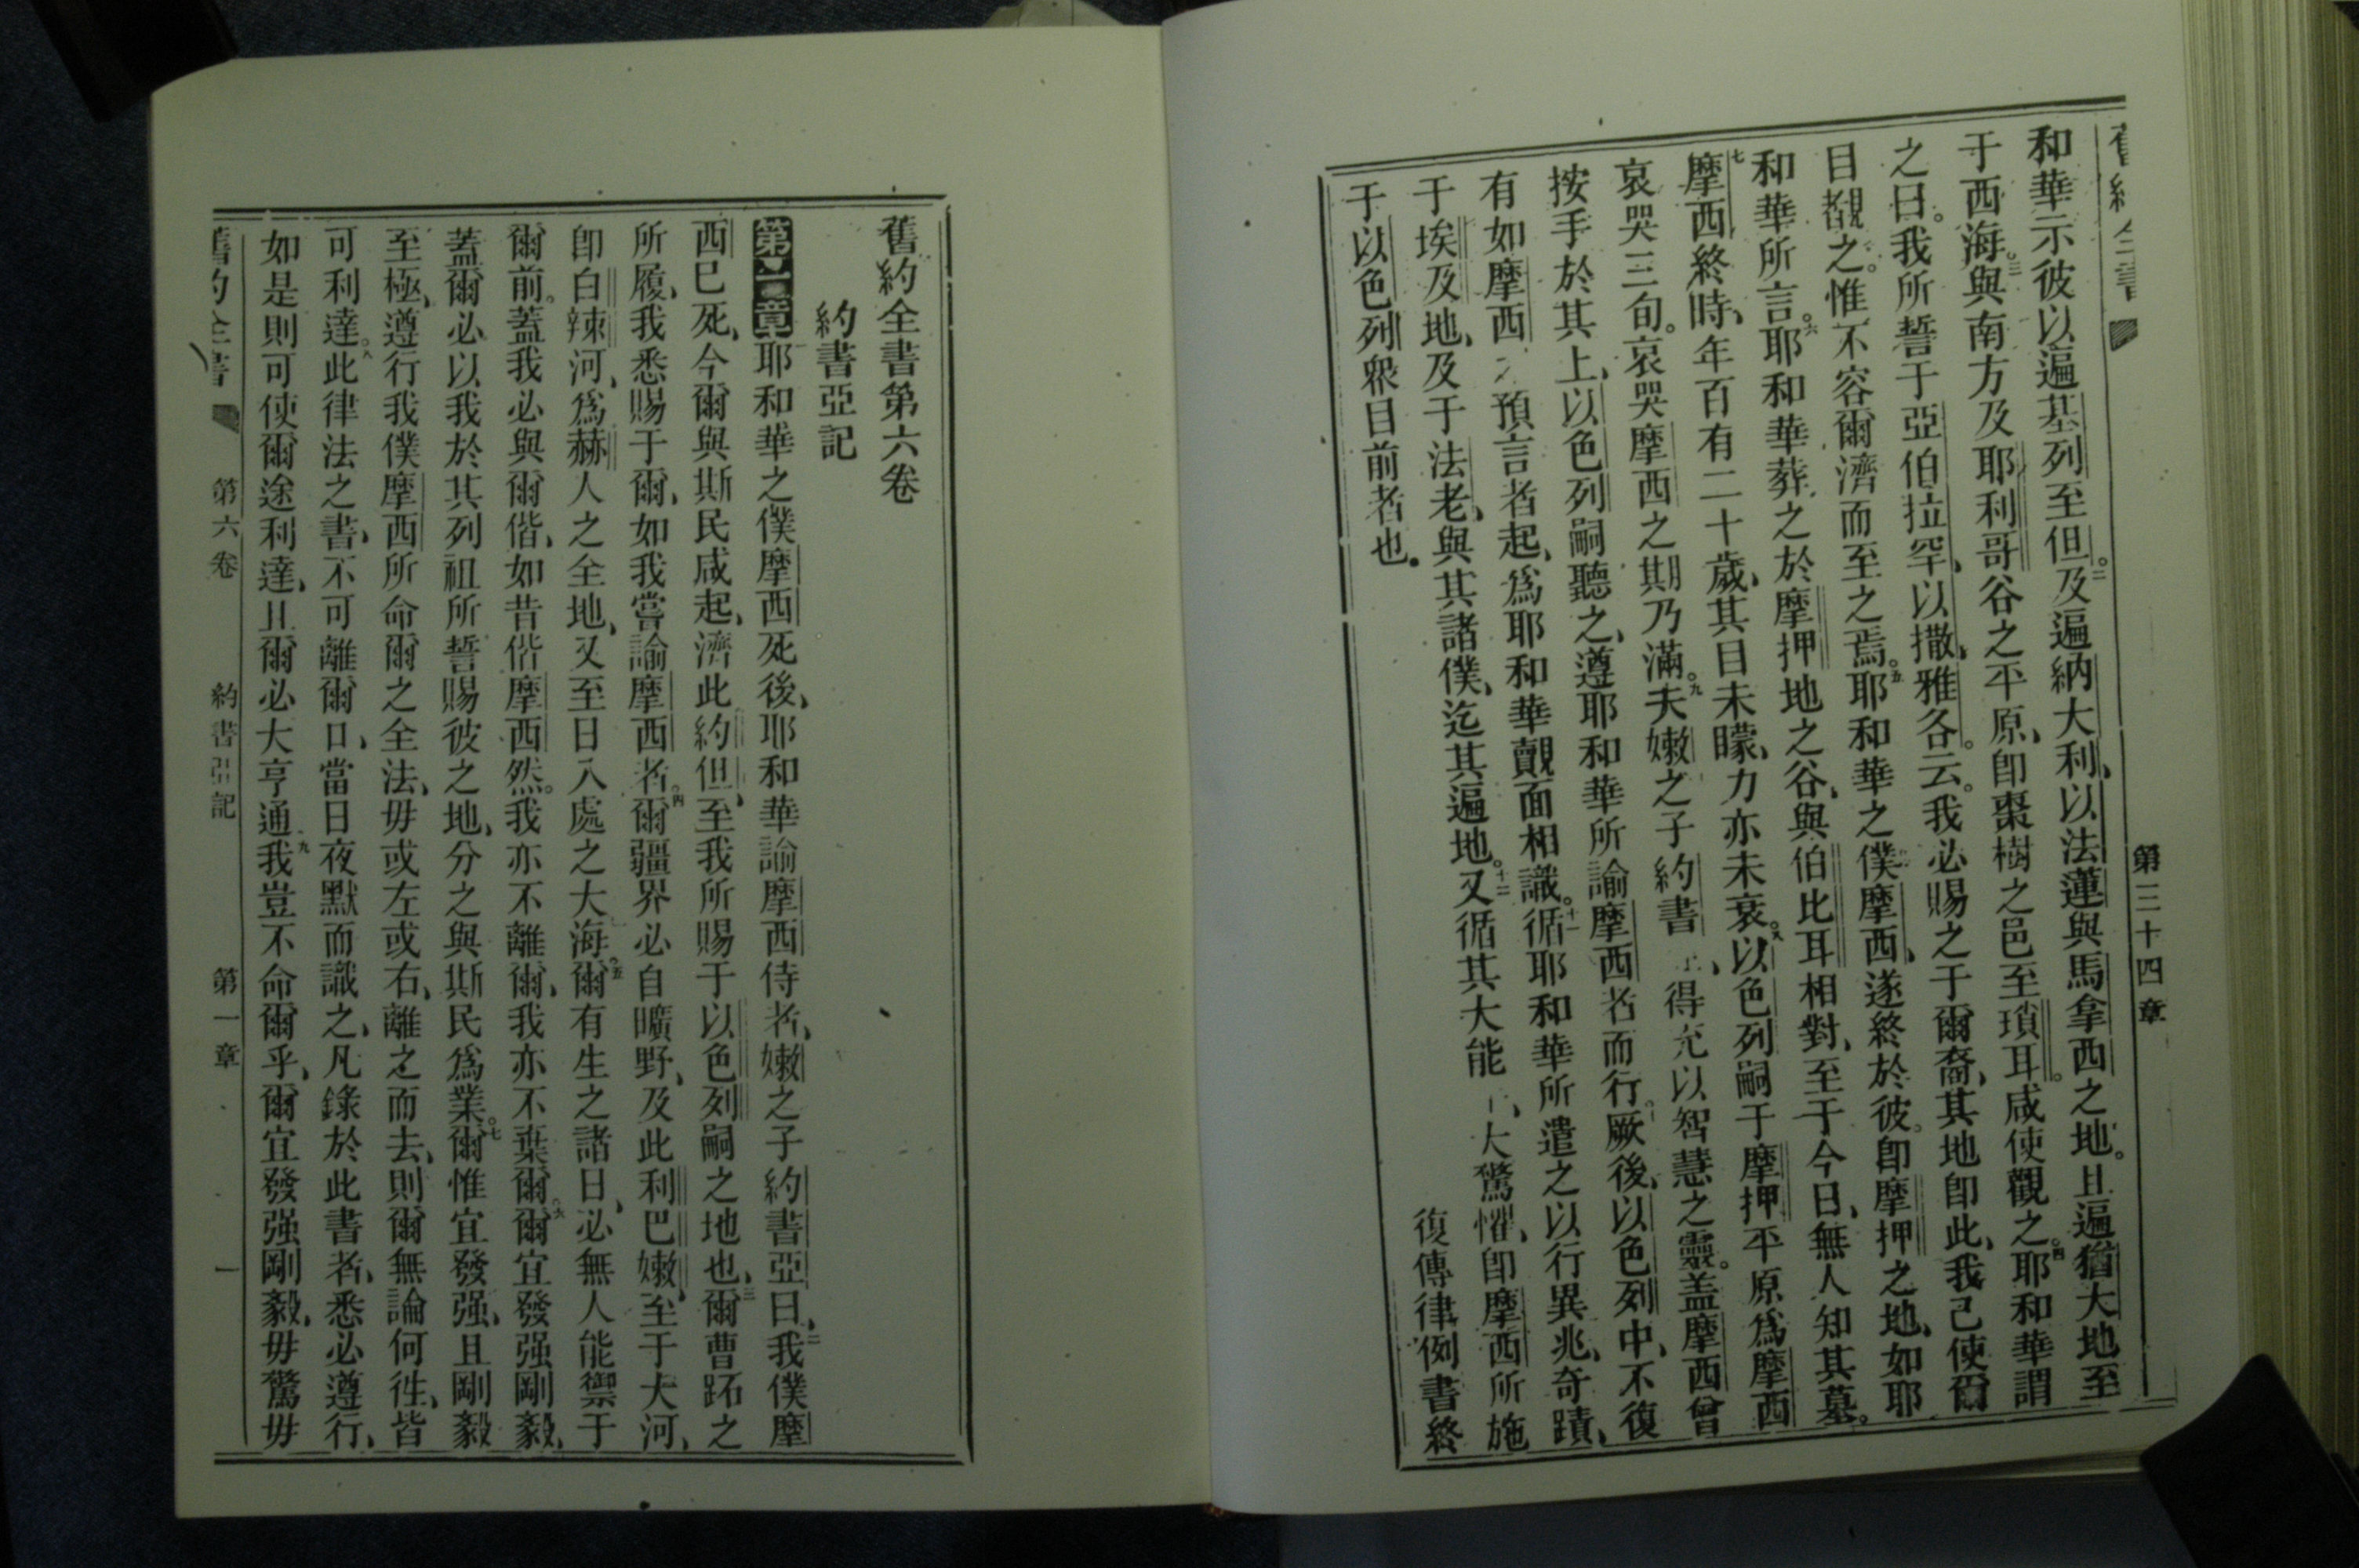 舊約全書
第三十四章
和華示彼以遍基列至但。二及遍納大利、以法蓮與馬拿西之地。且遍猶大地至
于西海。三與南方及耶利哥谷之平原、卽棗樹之邑至瑣耳。咸使觀之。四耶和華謂
之曰。我所誓于亞伯拉罕、以撒、雅各。云。我必賜之于爾裔、其地卽此、我已使爾
目覩之。惟不容爾濟而至之焉。五耶和華之僕摩西、遂終於彼。卽摩押之地、如耶
和華所言。六耶和華葬之於摩押地之谷、與伯比耳相對、至于今日、無人知其墓。
七摩西終時、年百有二十歲、其目未矇、力亦未衰。八以色列嗣于摩押平原爲摩西
哀哭三旬。哀哭摩西之期乃滿。九夫嫩之子約書 、得充以智慧之靈。盖摩西曾
按手於其上、以色列嗣聽之、遵耶和華所諭摩西者而行。十厥後、以色列中、不復
有如摩西 預言者起、爲耶和華覿面相識。十一循耶和華所遣之以行異兆、奇蹟、
于埃及地、及于法老、與其諸僕、迄其遍地。十二又循其大能 、大驚懼、卽摩西所施
于以色列衆目前者也。
復傳律例書終
舊約全書第六卷
約書亞記
第一章耶和華之僕摩西死後、耶和華諭摩西侍者、嫩之子約書亞曰、二我僕摩
西已死、今爾與斯民咸起、濟此約但、至我所賜于以色列嗣之地也、三爾曹跖之
所履、我悉賜于爾、如我嘗諭摩西者。四爾疆界必自曠野、及此利巴嫩、至于大河、
卽白辣河、爲赫人之全地、又至日入處之大海。五爾有生之諸日、必無人能禦于
爾前。蓋我必與爾偕、如昔偕摩西然。我亦不離爾、我亦不棄爾。六爾宜發强剛毅、
蓋爾必以我於其列祖所誓賜彼之地、分之與斯民爲業。七爾惟宜發强、且剛毅
至極、遵行我僕摩西所命爾之全法、毋或左或右、離之而去、則爾無論何徃、皆
可利達。八此律法之書、不可離爾口、當日夜默而識之、凡錄於此書者、悉必遵行、
如是則可使爾途利達、且爾必大亨通、九我豈不命爾乎、爾宜發强剛毅、毋驚毋
舊約全書 第六卷 約書亞記 第一章 一